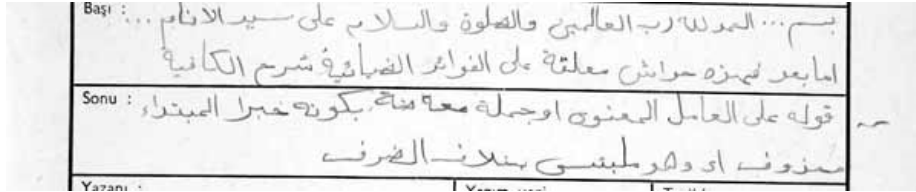 Başı : بسم ... الحمد لله رب العالمين والصلوة والسلام على سيد الانام ...
اما بعد فهذه حواش معلقة على الفوائد الضيائية شرح الكافية
Sonu : قوله على العامل المعنوى او جملة بكونه خبرا لمبتداء
محذوف اى وهو ملتبس بخلاف الظرف
Yazanı :